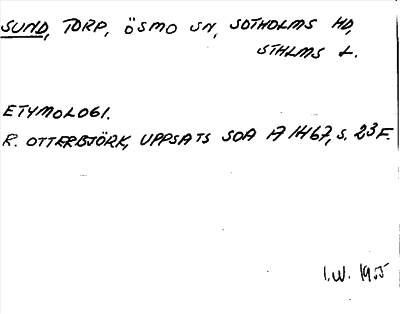 SUND, TORP, ÖSMO SN, SOTHOLMS HD,
STHLMS L.
ETYMOLOGI.
R. OTTERBJÖRK, UPPSATS SOA A 1467, S. 23 F.
I.W. 1955